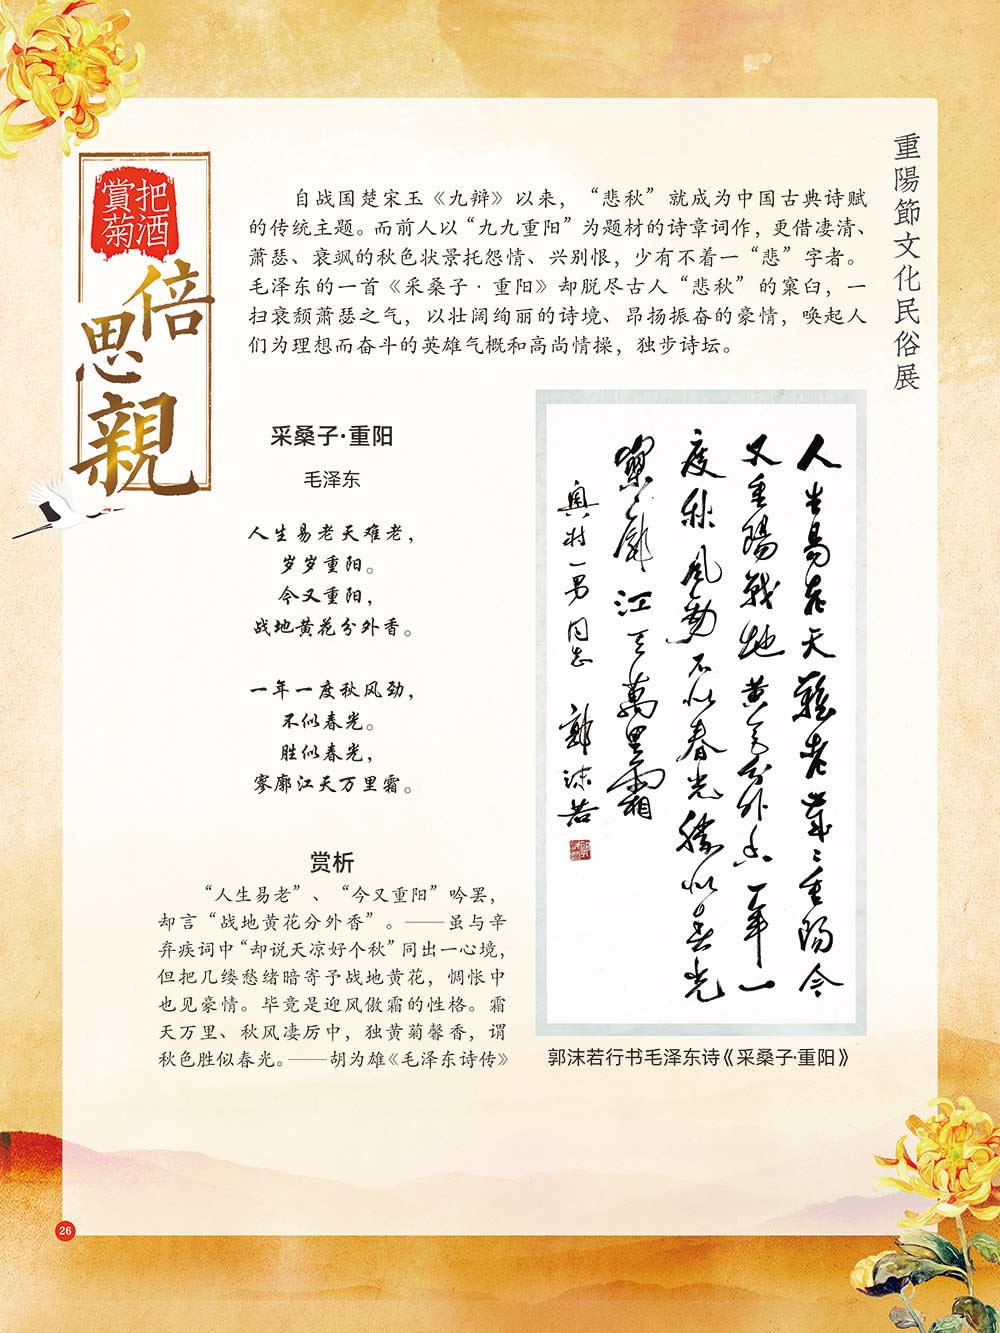 重陽節文化民俗展
把酒
賞菊
倍思親
自战国楚宋玉《九辩》以来，“悲秋”就成为中国古典诗赋
的传统主题。而前人以“九九重阳”为题材的诗章词作，更借凄清、
萧瑟、衰飒的秋色状景托怨情、兴别恨，少有不着一“悲”字者。
毛泽东的一首《采桑子·重阳》却脱尽古人“悲秋”的窠臼，一
扫衰颓萧瑟之气，以壮阔绚丽的诗境、昂扬振奋的豪情，唤起人
们为理想而奋斗的英雄气概和高尚情操，独步诗坛。
采桑子·重阳
毛泽东
人生易老天难老，
岁岁重阳。
今又重阳，
战地黄花分外香。
一年一度秋风劲，
不似春光。
胜似春光，
寥廓江天万里霜。
赏析
“人生易老”、“今又重阳”吟罢，
却言“战地黄花分外香”。——虽与辛
弃疾词中“却说天凉好个秋”同出一心境，
但把几缕愁绪暗寄予战地黄花，惆怅中
也见豪情。毕竟是迎风傲霜的性格。霜
天万里、秋风凄厉中，独黄菊馨香，谓
秋色胜似春光。——胡为雄《毛泽东诗传》
人生易老天難老歲々重陽今
又重陽戰地黄花分外香一年一
度秋風勁不似春光勝似春光
寥廓江天萬里霜
奥村一男同志 郭沫若
郭沫若行书毛泽东诗《采桑子·重阳》
26